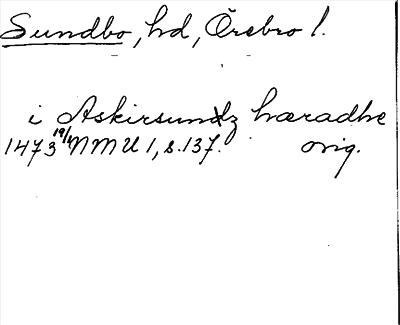 Sundbo, hd, Örebro l.
i Askirsundz hæradhe
1473 19/1 NMU 1, s. 137. orig.